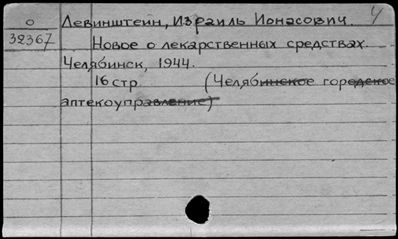 о Левинштейн, Израиль Ионасович. У
32367 Новое о лекарственных средствах.
Челябинск, 1944.
16 стр (Челябинское городское
аптекоуправление)